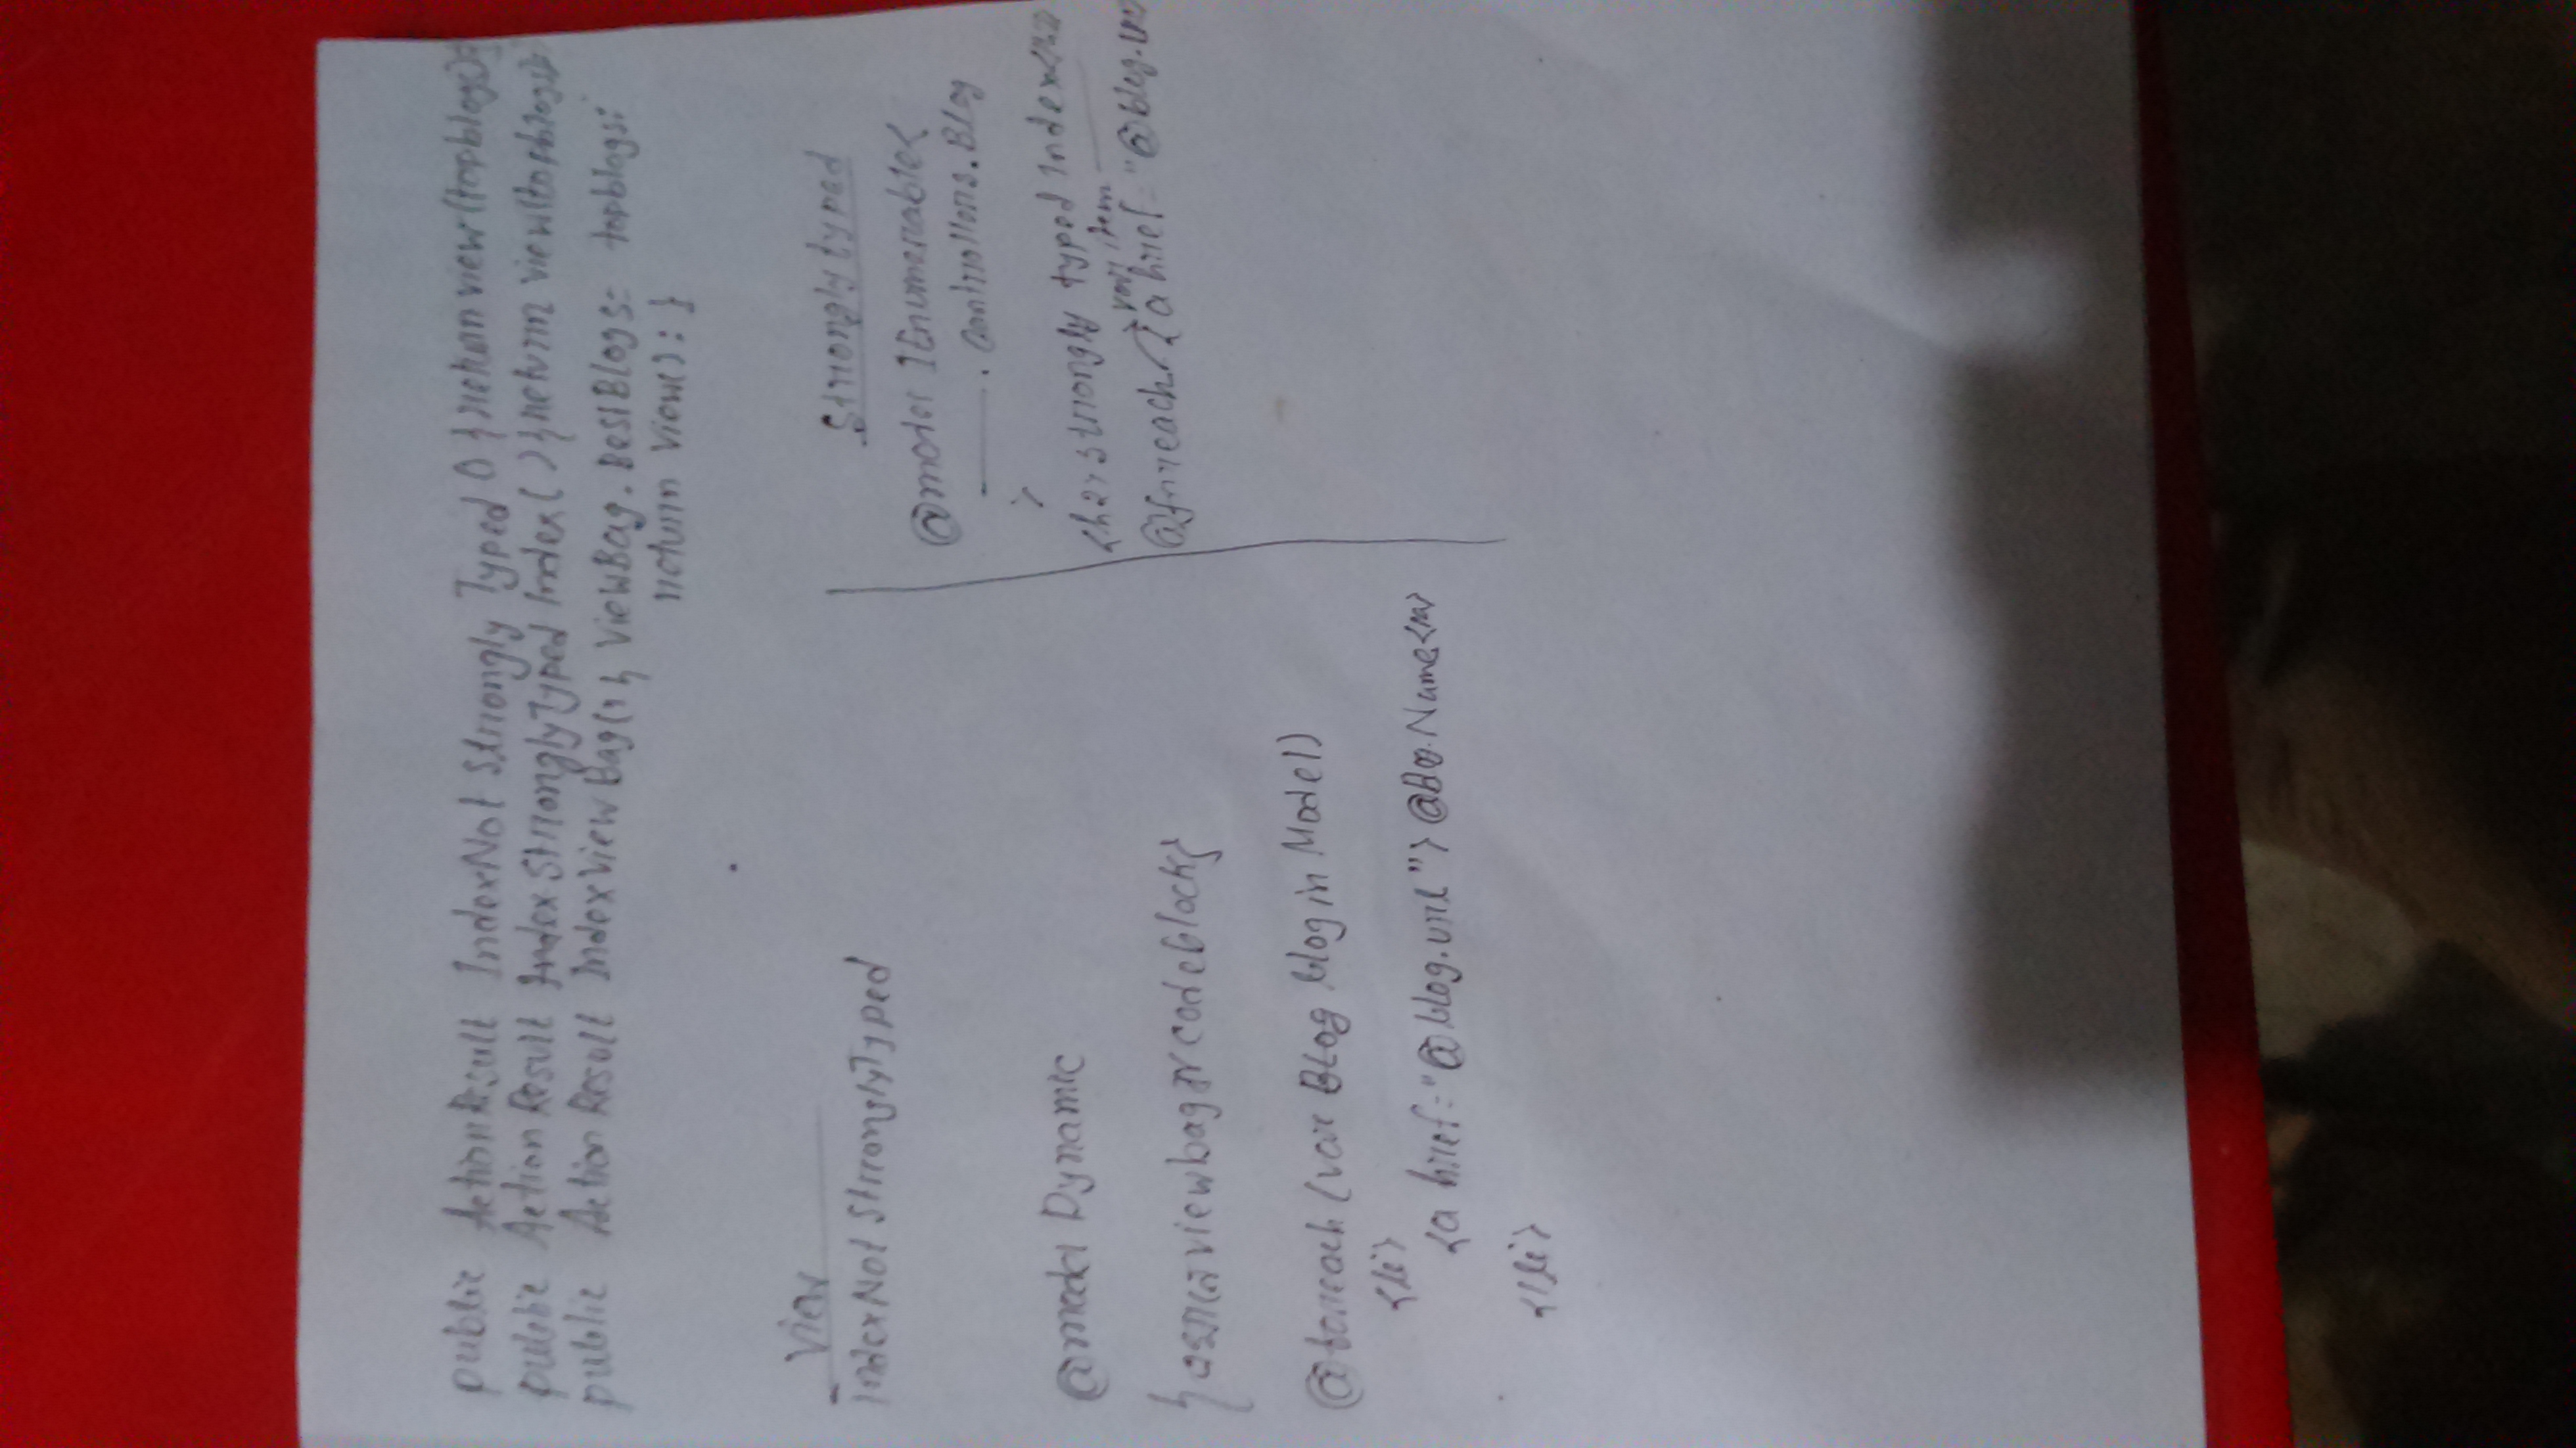 public ActionResult IndexNot Strongly Typed () { return view(topblogs);
public Action Result Index StronglyTyped Index( ) { return view(topblogs)
public Action Result IndexViewBag() { ViewBag. BestBlogs= topblogs;
return View(); }
View
IndexNot StronglyTyped
@model Dynamic
viewbag codeblock}
@foreach (var Blog blog in Model)
<li>
<a href="@blog.url"> Name</a>
</li>
Strongly typed
@model IEnumerable<
. Controllers. Blog
>
<h2> strongly typed Index
var item
@foreach { a href = "@blog.